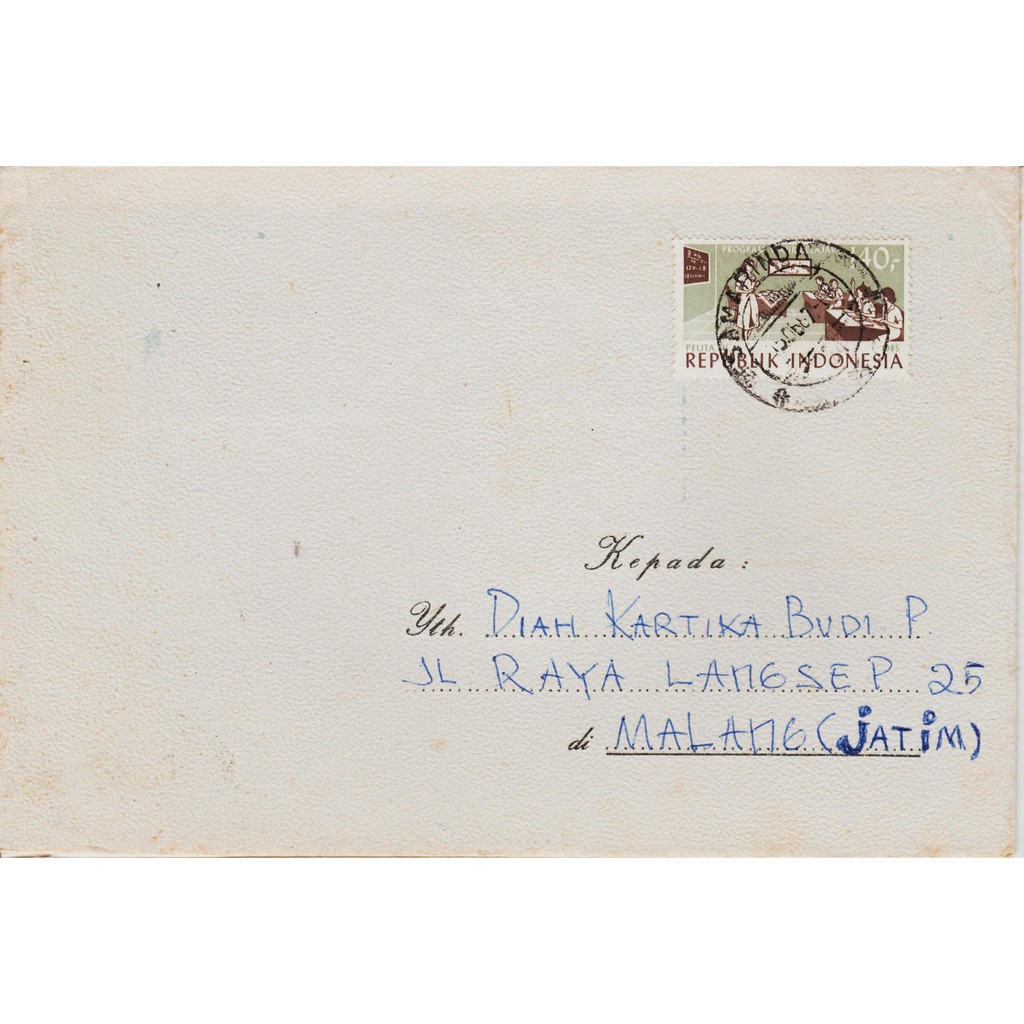 PROGRAM
140,-
SAMARINDA
PELITA 1985
REPUBLIK INDONESIA
Kepada :
Yth. DIAH KARTIKA BUDI P.
JL RAYA LANGSEP 25
di MALANG (JATIM)